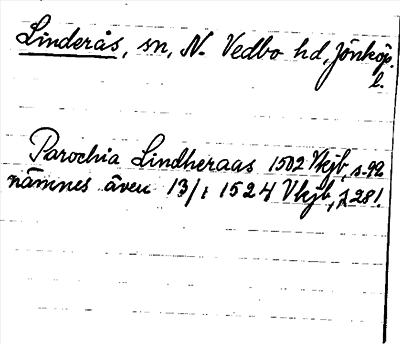 Linderås, sn, N. Vedbo hd, Jönköp.
l.
Parochia Lindheraas 1502 Vkjb, s. 92
nämnes även 13/1 1524 Vkjb, s 281